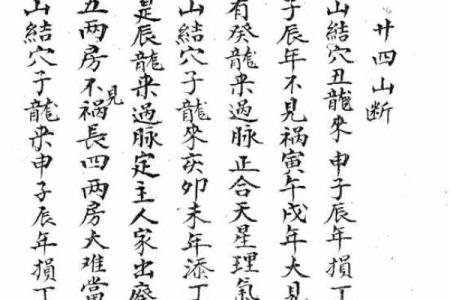 廿四山断
山結穴丑龍來申子辰年損丁
子辰年不見祸寅午戌年大見
有癸龍來過脉正合天星理氣
山結穴子龍來亥卯未年添丁
是辰龍來過脉定主人家出廢
五两房不見祸長四两房大难當
山結穴子龍來申子辰年損丁